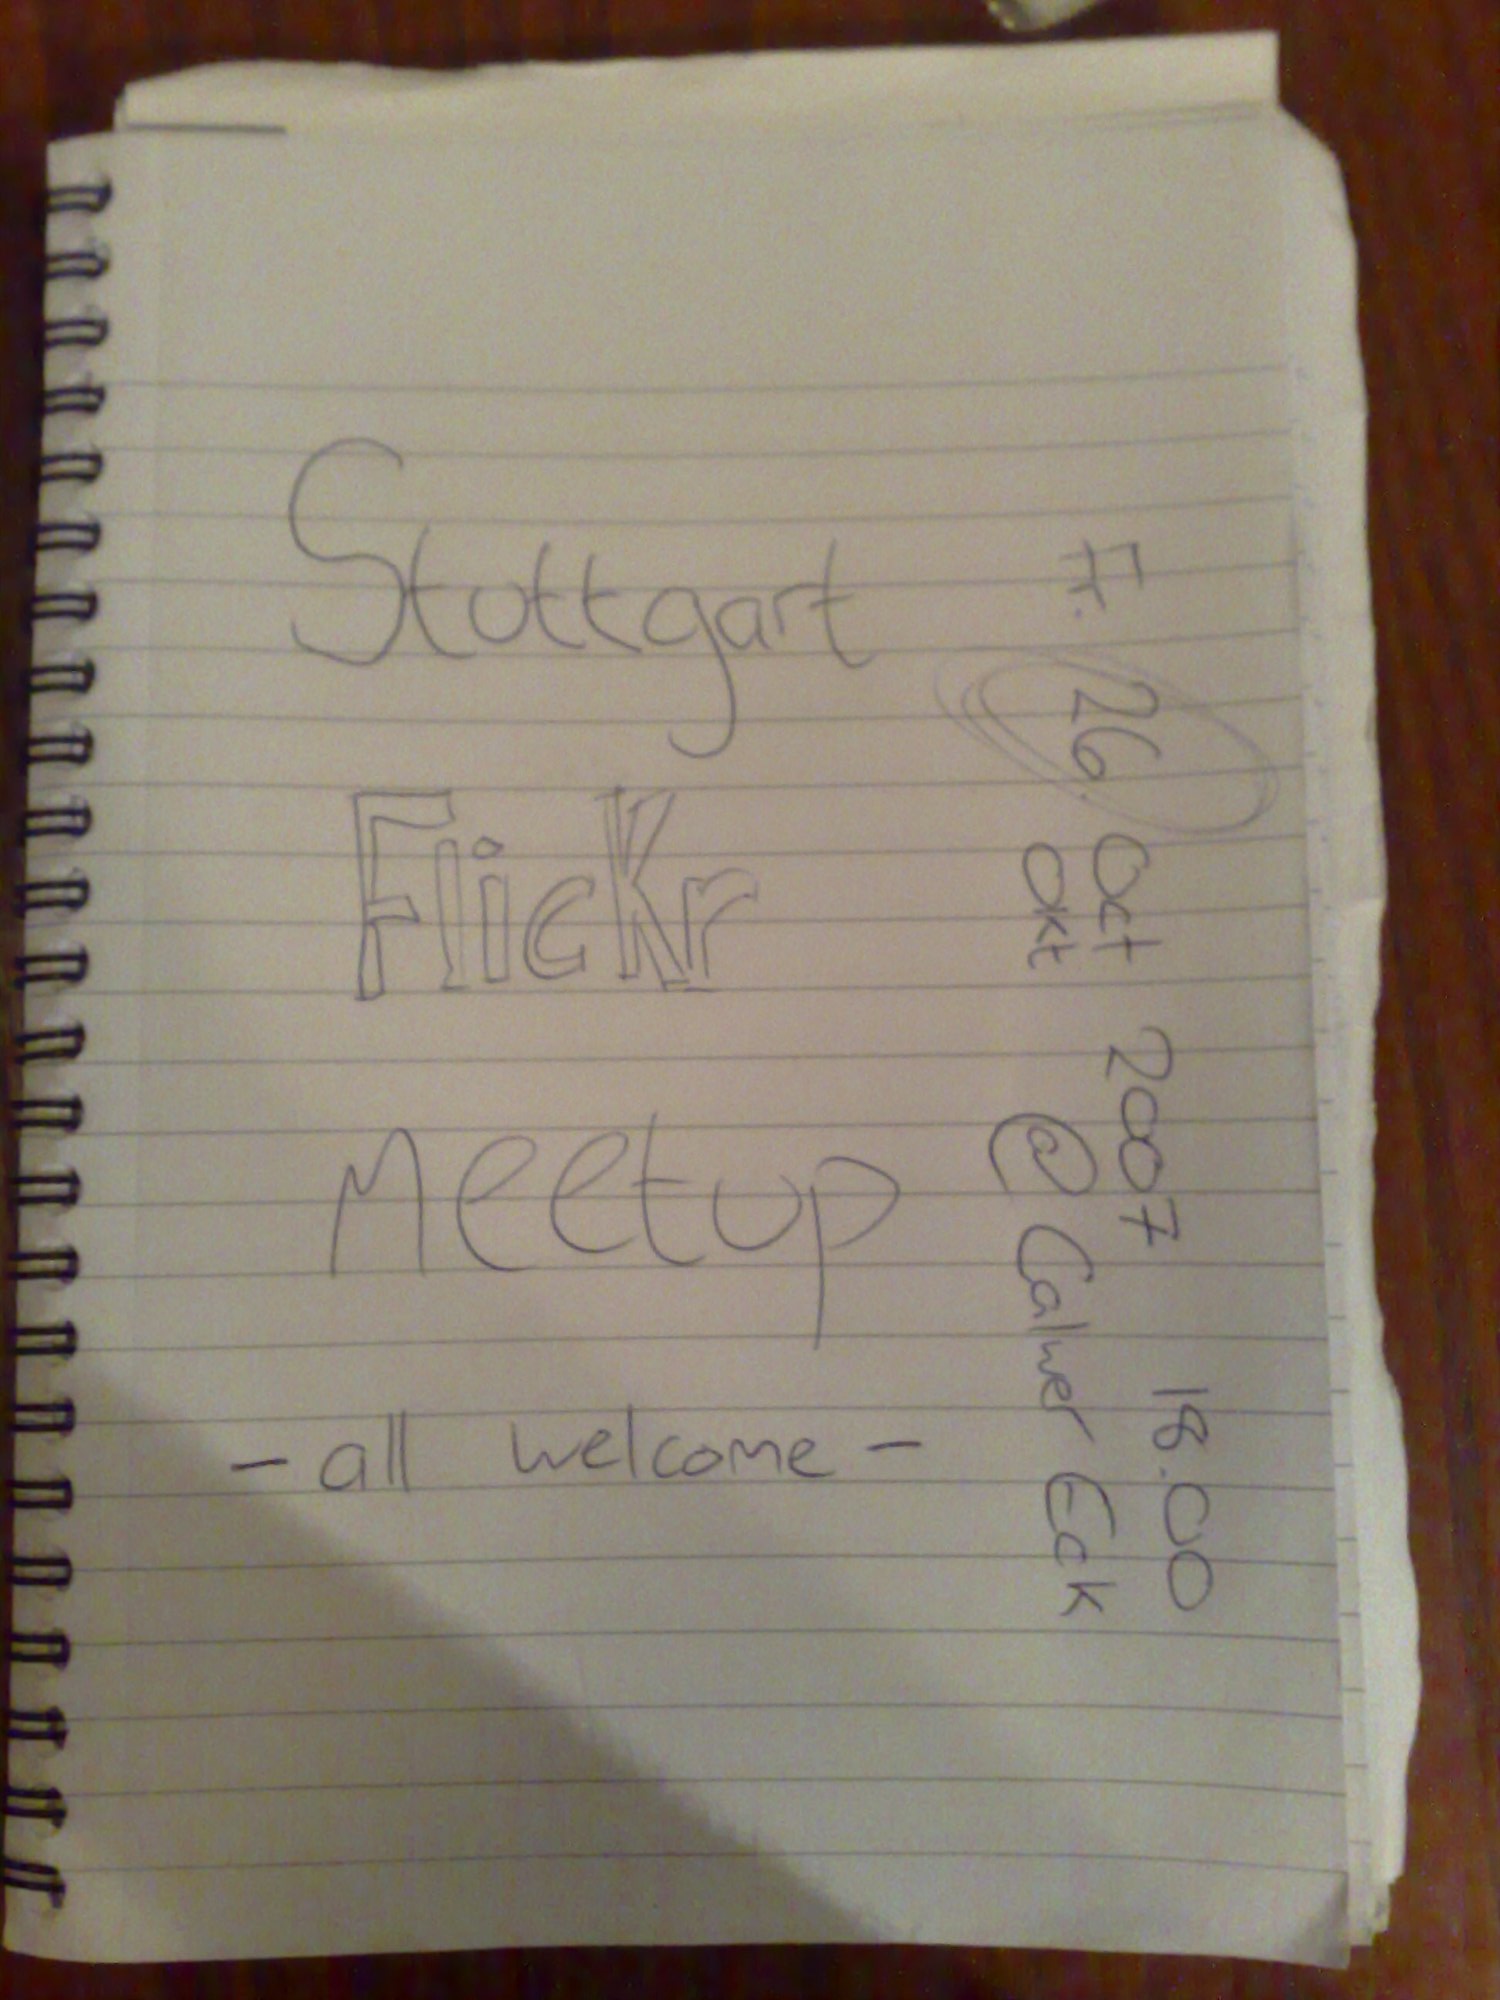 Stuttgart
Flickr
Meetup
- all welcome -
Fr. 26. Oct 2007 18.00
Okt
@ Calwer Eck